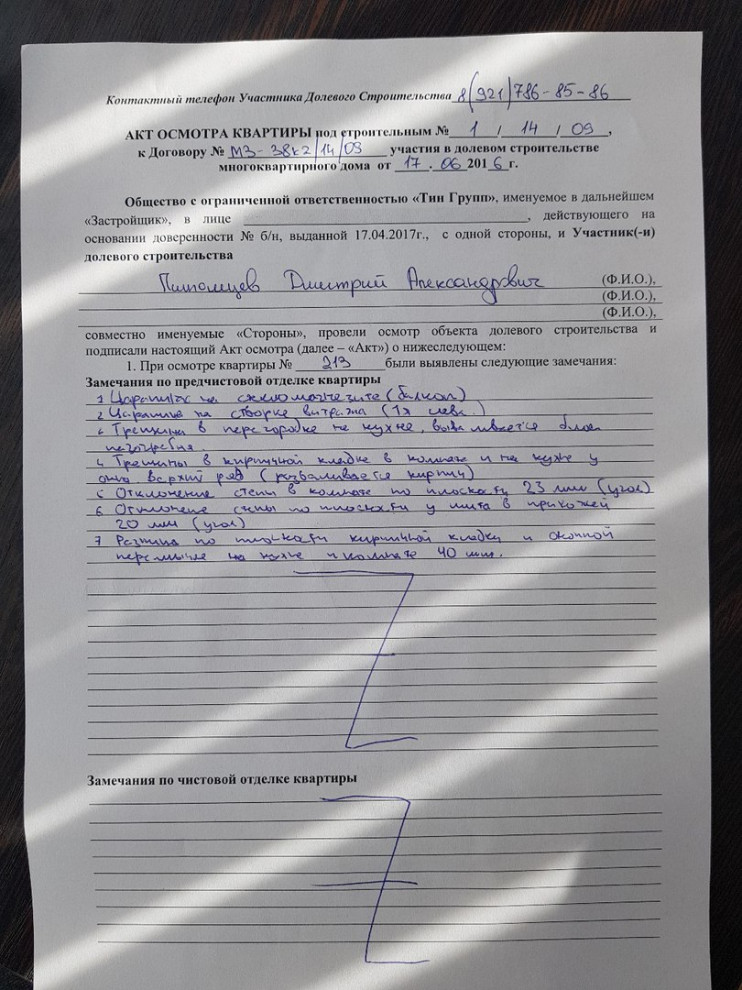 Контактный телефон Участника Долевого Строительства 8(921)786-85-86
АКТ ОСМОТРА КВАРТИРЫ под строительным № 1 / 14 / 09,
к Договору № МЗ-38к2/14/09 участия в долевом строительстве
многоквартирного дома от 17.06 2016г.
Общество с ограниченной ответственностью «Тин Групп», именуемое в дальнейшем
«Застройщик», в лице , действующего на
основании доверенности № б/н, выданной 17.04.2017г., с одной стороны, и Участник(-и)
долевого строительства
Дмитрий Александрович (Ф.И.О.),
(Ф.И.О.),
(Ф.И.О.),
совместно именуемые «Стороны», провели осмотр объекта долевого строительства и
подписали настоящий Акт осмотра (далее – «Акт») о нижеследующем:
1. При осмотре квартиры № 213 были выявлены следующие замечания:
Замечания по предчистовой отделке квартиры
1 Царапины на (балкон)
2 Царапина на створке витража (1я лева.)
Трещина в перегородке на кухне, вываливается блок
4 Трещины в кирпичной кладке в комнате и на кухне у
окна верхний ряд (разваливается кирпич)
5 Отклонение стены в комнате по плоскости 23 мм (угол)
6 Отклонение стены по плоскости у щита в прихожей
20 мм (угол)
7 Разница по плоскости кирпичной кладки и оконной
перемычке на кухне и комнате 40 мм.
Замечания по чистовой отделке квартиры